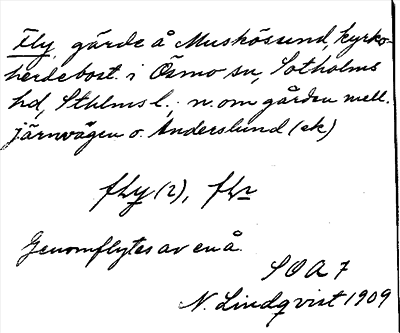 Fly, gärde å Muskösund, kyrko-
herdebost. i Ösmo sn, Sotholms
hd, Sthlms l., n. om gården mell.
järnvägen o. Anderslund (ek)
fly (2), fly
Genomflytes av en å
SOA 7
N. Lindqvist 1909